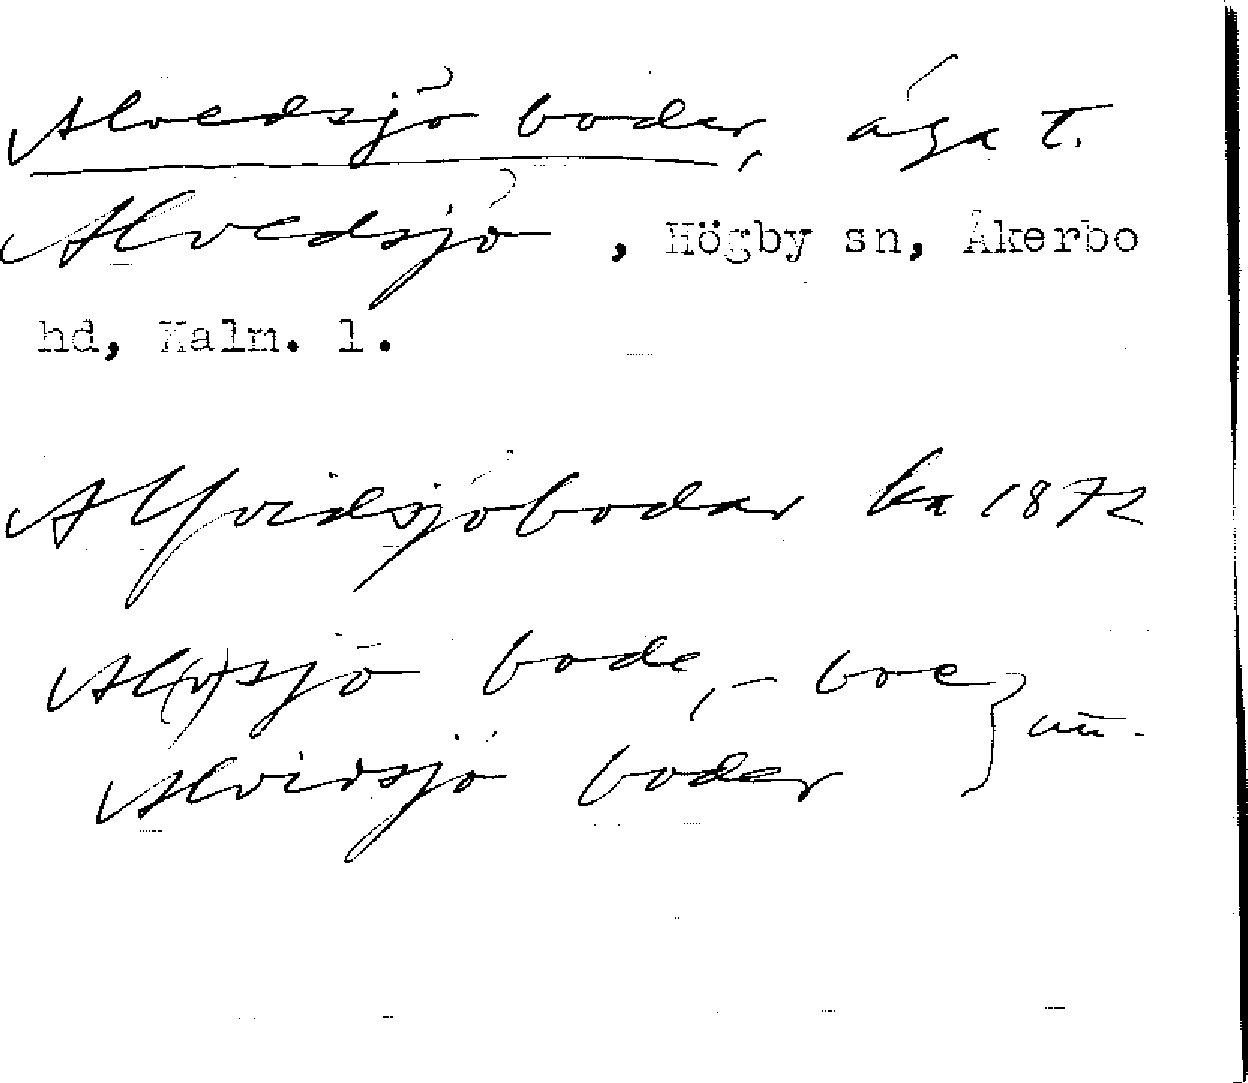 Alvedsjö bodar, äga t.
Alvedsjö, Högby sn, Åkerbo
hd, Kalm. l.
Alfvidsjöbodar ka 1872
Al(v)sjö bode, - boe } un.
Alvidsjö bodar